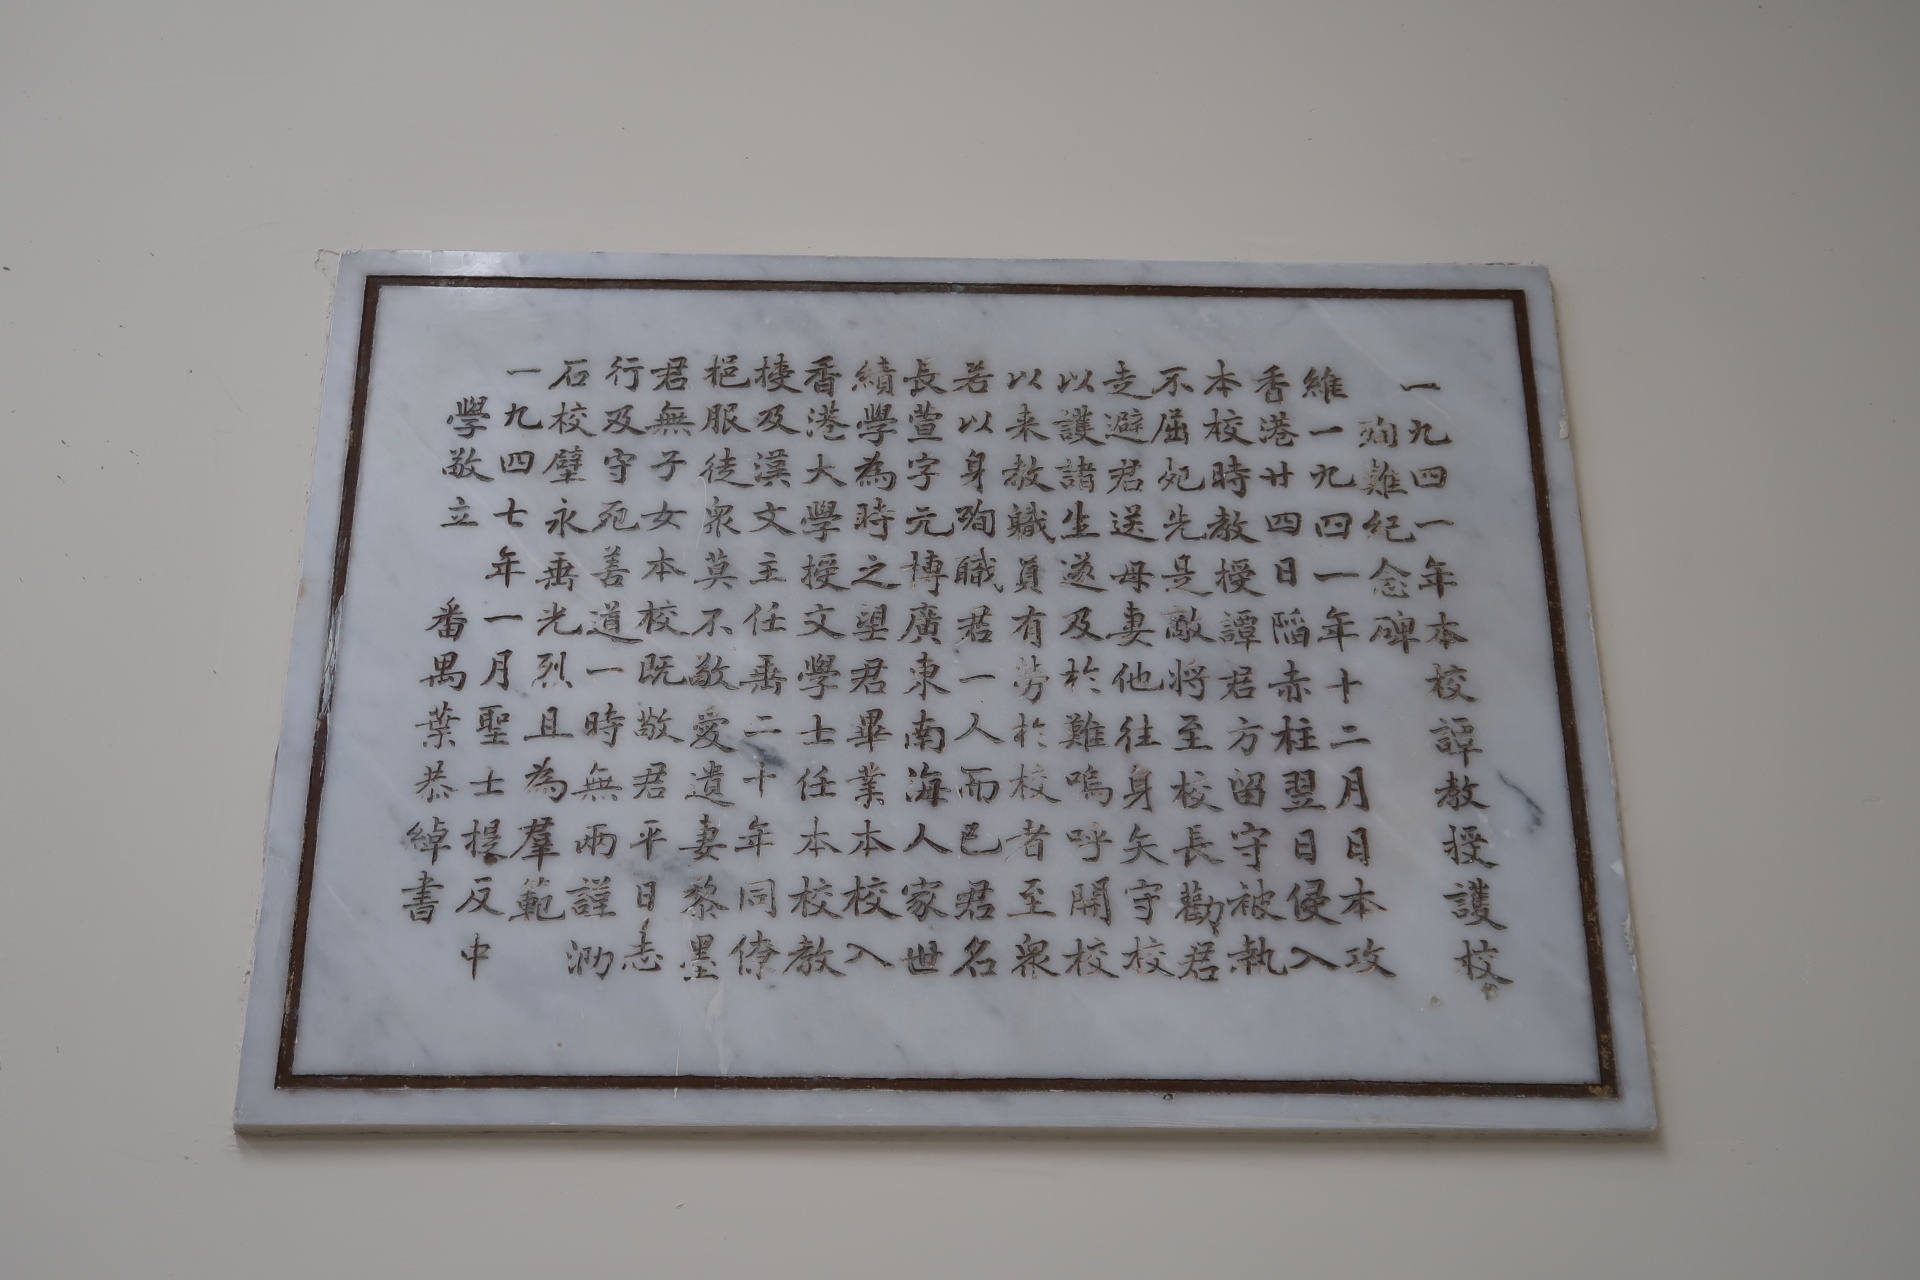 一九四一年本校譚教授護校
殉難紀念碑
維一九四一年十二月日本攻
香港廿四日陷赤柱翌日侵入
本校時教授譚君方留守被執
不屈死先是敵將至校長勸君
走避君送母妻他往身矢守校
以護諸生遂及於難嗚呼開校
以来教職員有勞於校者至衆
若以身殉職君一人而已君名
長萱字元博廣東南海人家世
績學為時之望君畢業本校入
香港大學授文學士任本校教
㨗及漢文主任垂二十年同僚
挹服徒衆莫不敬愛遺妻黎墨
君無子女本校既敬君平日志
行及守死善道一時無兩謹泐
石校壁永垂光烈且為羣範
一九四七年一月聖士提反中
學敬立
番禺葉恭綽書